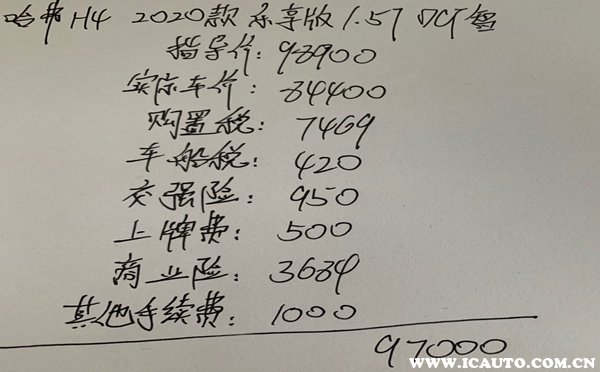 哈弗H4 2020款 乐享版1.5T DCT智
指导价: 98900
实际车价: 84400
购置税: 7469
车船税: 420
交强险: 950
上牌费: 500
商业险: 3684
其他手续费: 1000
97000
爱车网
WWW.ICAUTO.COM.CN